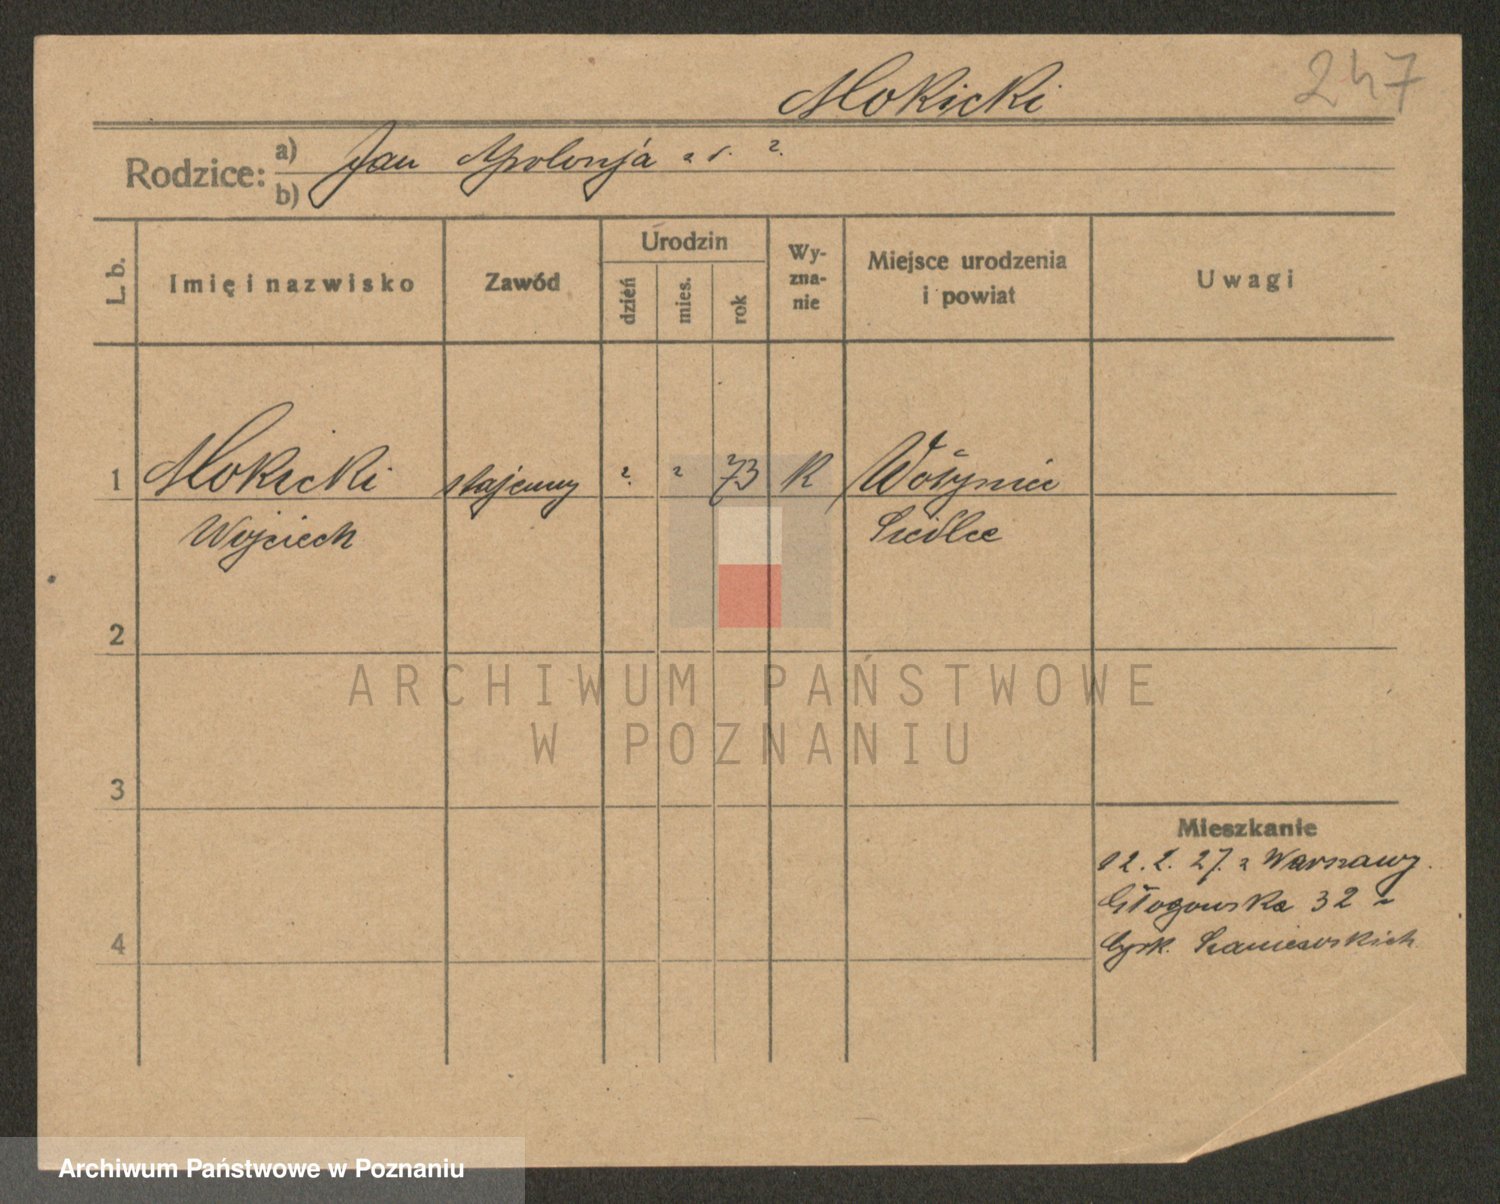 Mokicki
247
Rodzice:
a) Jan Apolonja z d. ?
b)
L. b.
Imię i nazwisko
Zawód
Urodzin
dzień
mies.
rok
Wy-
zna-
nie
Miejsce urodzenia
i powiat
Uwagi
1 Mokicki stajenny ? ? 73 R Wołynice
Wojciech Siedlce
2
ARCHIWUM PAŃSTWOWE
W POZNANIU
3
Mieszkanie
12. 2. 27. z Warszawy
Głogowska 32
Cyrk. Staniewskich
4
Archiwum Państwowe w Poznaniu